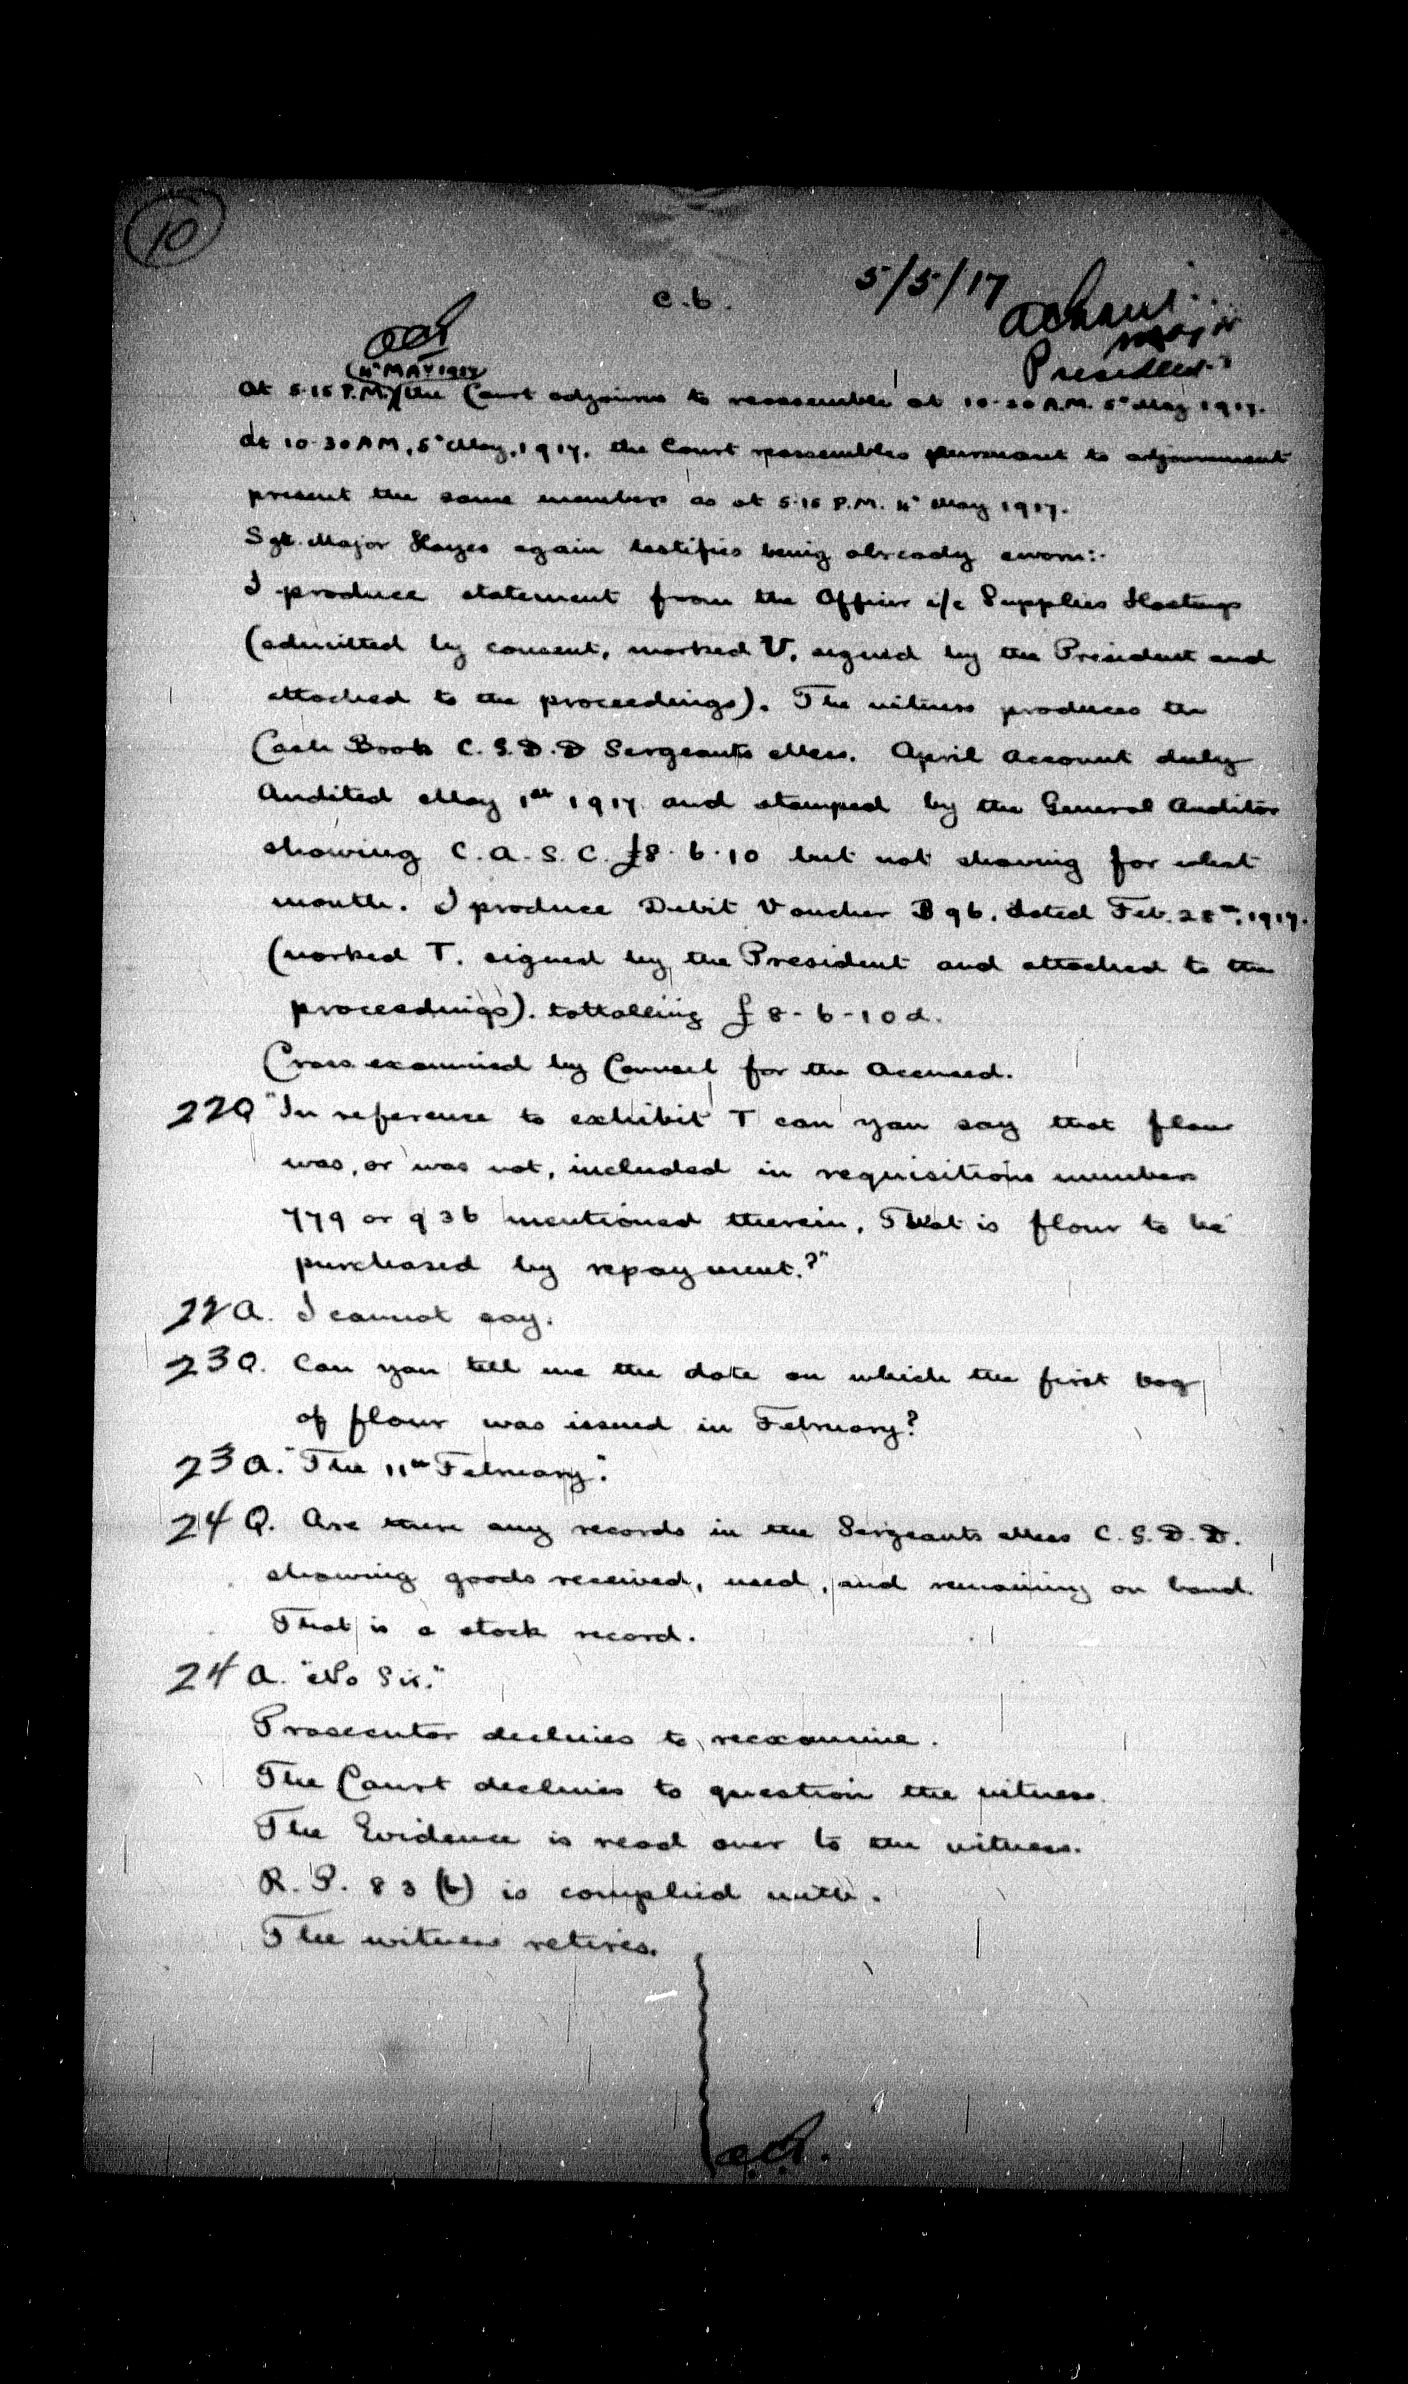 10
5/5/17
C.6.
Major
President
(4" MAY 1917
At 5.15 P.M.) the Court adjourns to reassemble at 10-30 A.M. 5" May 1917.
At 10-30 AM, 5" May, 1917, the Court reassembles pursuant to adjournment
present the same members as at 5.15 P.M. 4" May 1917.
Sgt. Major Hayes again testifies being already sworn:-
I produce statement from the Officer i/c Supplies Hastings
(admitted by consent, marked V, signed by the President and
attached to the proceedings). The witness produces the
Cash Book C.S.D.D Sergeants Mess. April Account duly
Audited May 1st 1917 and stamped by the General Auditor
showing C.A.S.C. £8.6.10 but not showing for what
month. I produce Debit Voucher B96, dated Feb. 28th, 1917.
(marked T. signed by the President and attached to the
proceedings). tottalling £8-6-10d.
Cross examined by Counsel for the Accused.
22Q "In reference to exhibit T can you say that flour
was, or was not, included in requisitions numbers
779 or 936 mentioned therein, That is flour to be
purchased by repayment.?"
22A. I cannot say.
23Q. Can you tell me the date on which the first bag
of flour was issued in February?
23A. "The 11th February."
24Q. Are there any records in the Sergeants Mess C.S.D.D.
showing goods received, used, and remaining on hand.
That is a stock record.
24A. "No Sir."
Prosecutor declines to reexamine.
The Court declines to question the witness.
The Evidence is read over to the witness.
R.P. 83 (b) is complied with.
The witness retires.